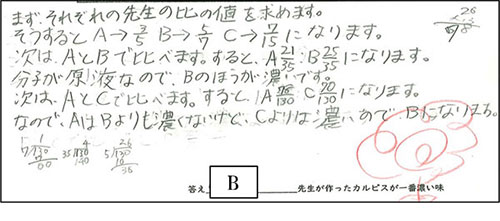 まず、それぞれの先生の比の値を求めます。
そうするとA→3/5 B→5/7 C→7/15になります。
次は、AとBで比べます。すると、A21/35 B25/35になります。
分子が原液なので、Bのほうが濃いです。
次は、AとCで比べます。すると、A /130 C70/130になります。
なので、AはBよりも濃くないけど、Cよりは濃いのでBになります。
答え B 先生が作ったカルピスが一番濃い味